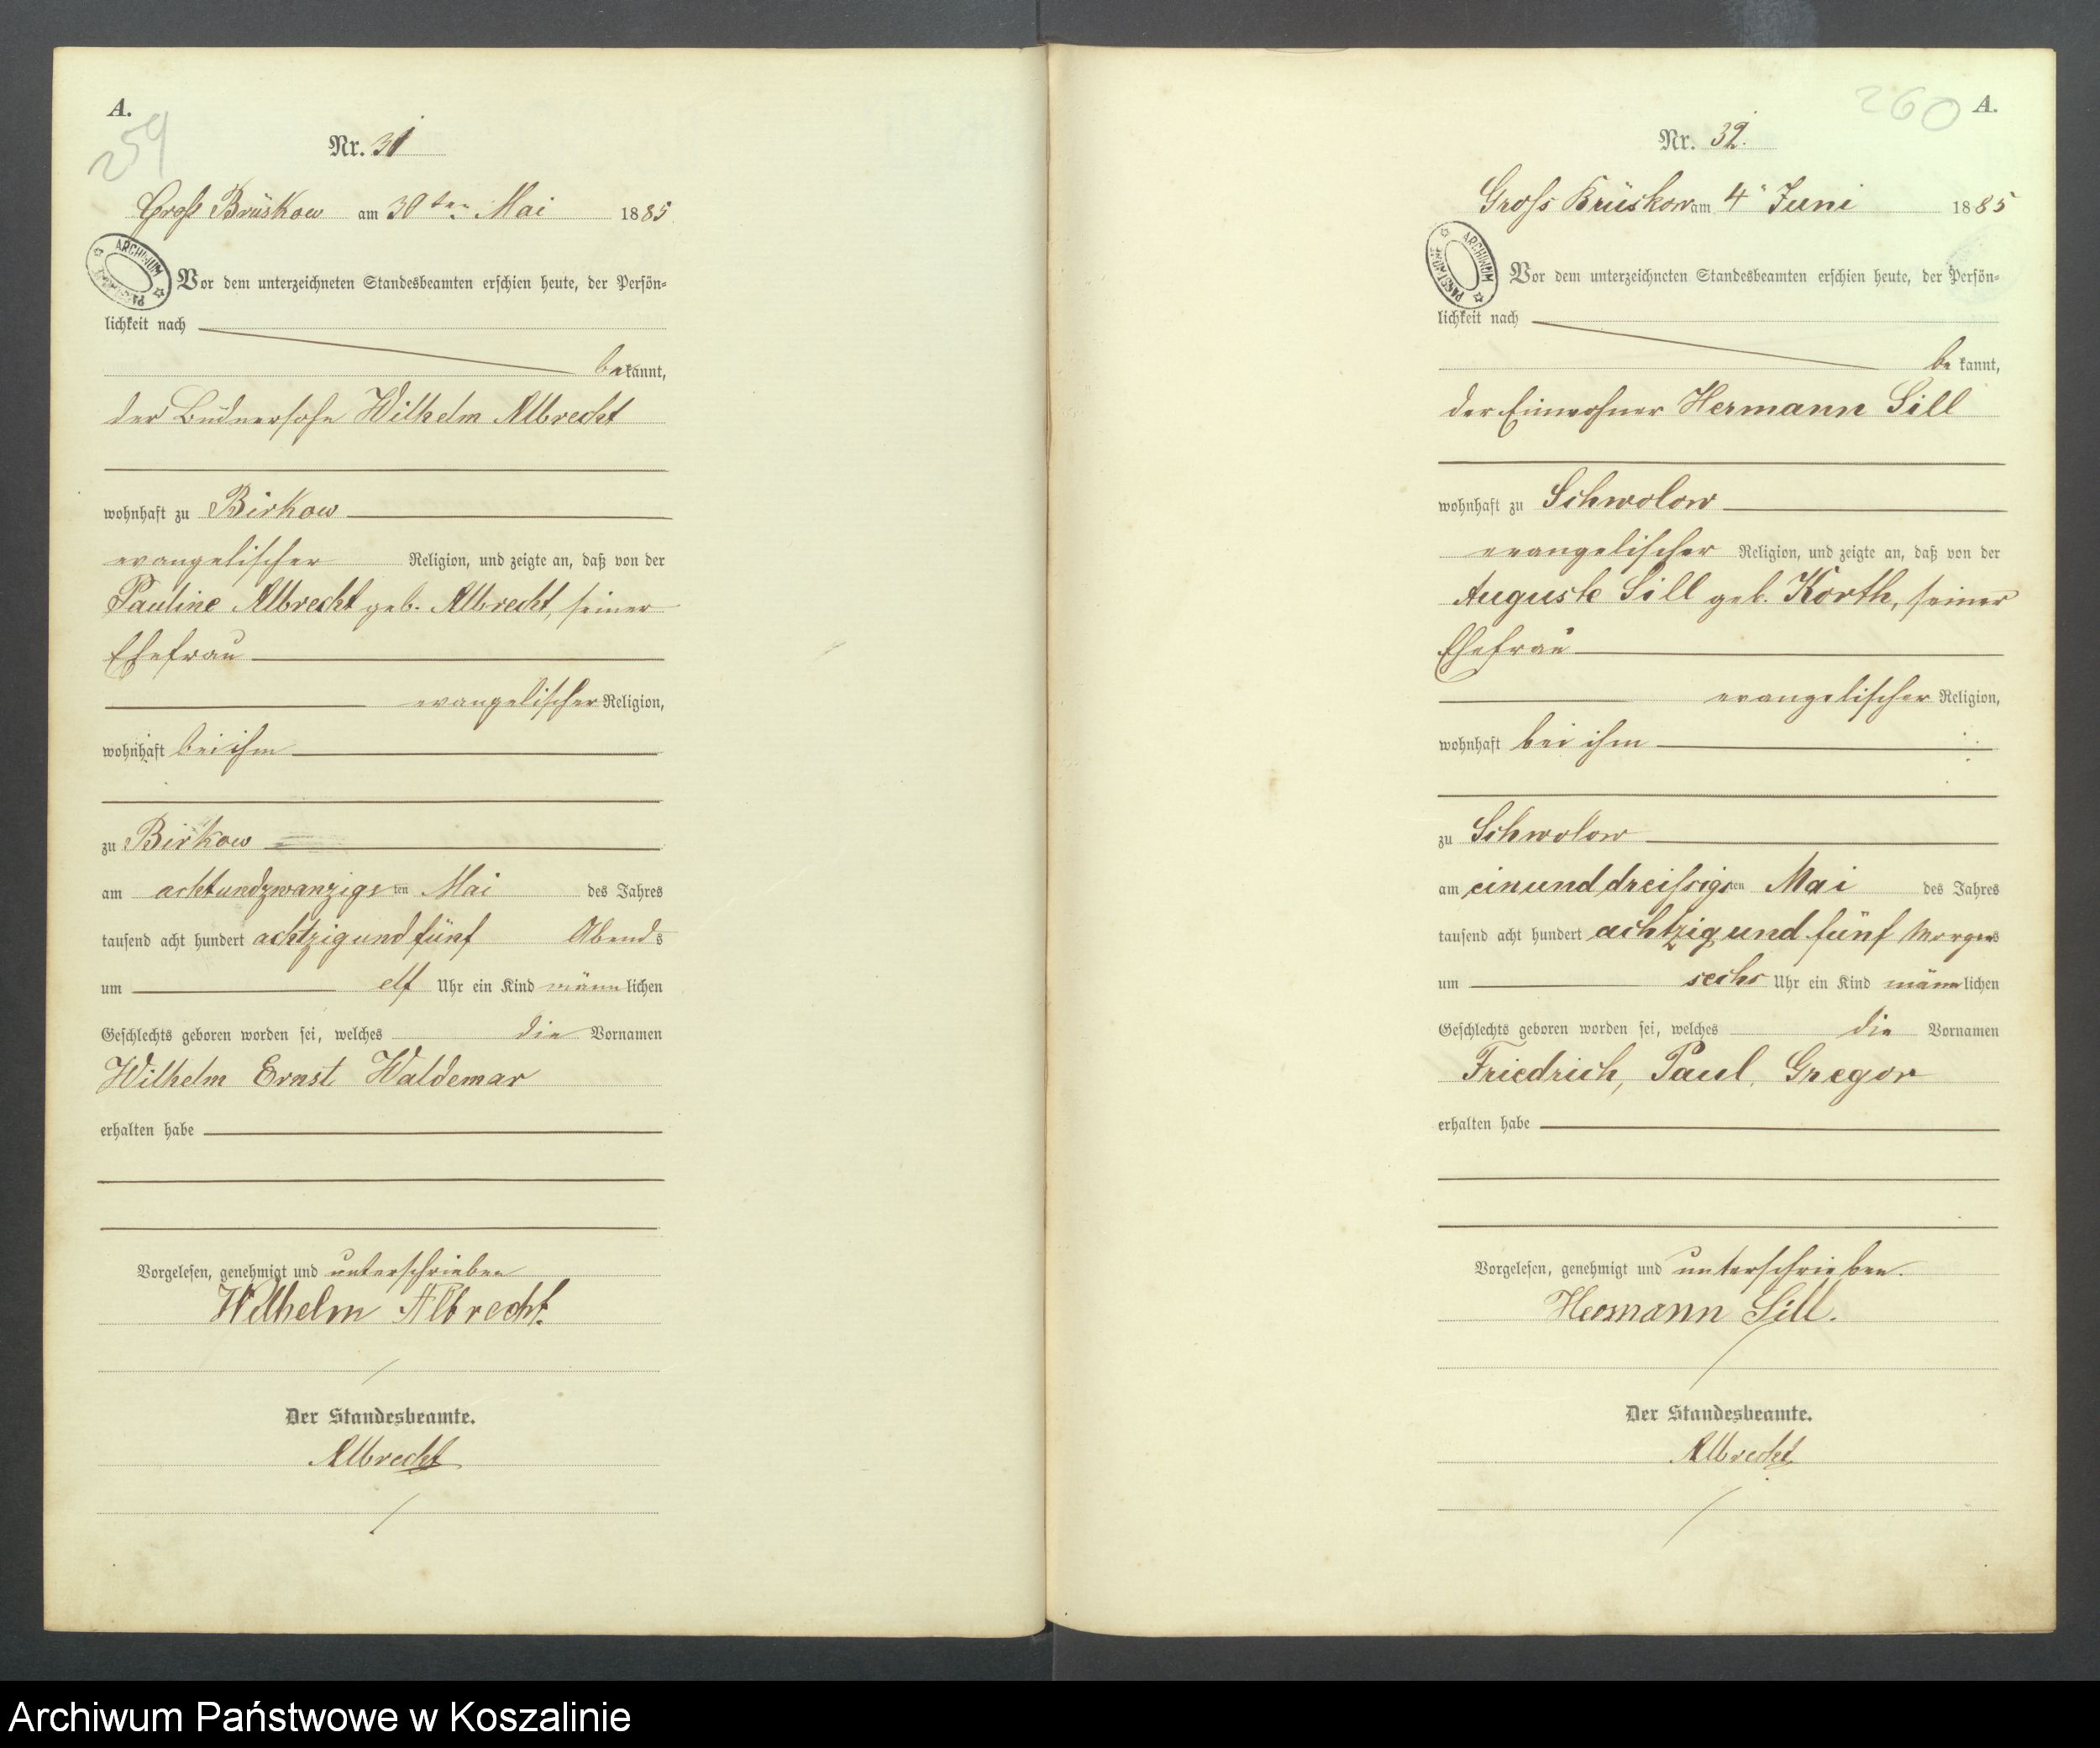 A.
259
Nr. 31
Groß Brüskow am 30ten Mai 1885
ARCHIWUM
Vor dem unterzeichneten Standesbeamten erschien heute, der Persön-
lichkeit nach
bekannt,
der Büdnersohn Wilhelm Albrecht
wohnhaft zu Birkow
evangelischer Religion, und zeigte an, daß von der
Pauline Albrecht geb. Albrecht, seiner
Ehefrau
evangelischer Religion,
wohnhaft bei ihm
zu Birkow
am achtundzwanzigsten Mai des Jahres
tausend acht hundert achtzig und fünf Abends
um elf Uhr ein Kind männlichen
Geschlechts geboren worden sei, welches die Vornamen
Wilhelm Ernst Waldemar
erhalten habe
Vorgelesen, genehmigt und unterschrieben
Wilhelm Albrecht.
Der Standesbeamte.
Albrecht
260
A.
Nr. 32.
Gross Brüskow am 4" Juni 1885
ARCHIWUM
Vor dem unterzeichneten Standesbeamten erschien heute, der Persön-
lichkeit nach
bekannt,
der Einwohner Hermann Sill
wohnhaft zu Schwolow
evangelischer Religion, und zeigte an, daß von der
Auguste Sill geb. Korth, seiner
Ehefrau
evangelischer Religion,
wohnhaft bei ihm
zu Schwolow
am einunddreissigsten Mai des Jahres
tausend acht hundert achtzig und fünf Morgens
um sechs Uhr ein Kind männlichen
Geschlechts geboren worden sei, welches die Vornamen
Friedrich, Paul, Gregor
erhalten habe
Vorgelesen, genehmigt und unterschrieben.
Hermann Sill.
Der Standesbeamte.
Albrecht
Archiwum Państwowe w Koszalinie